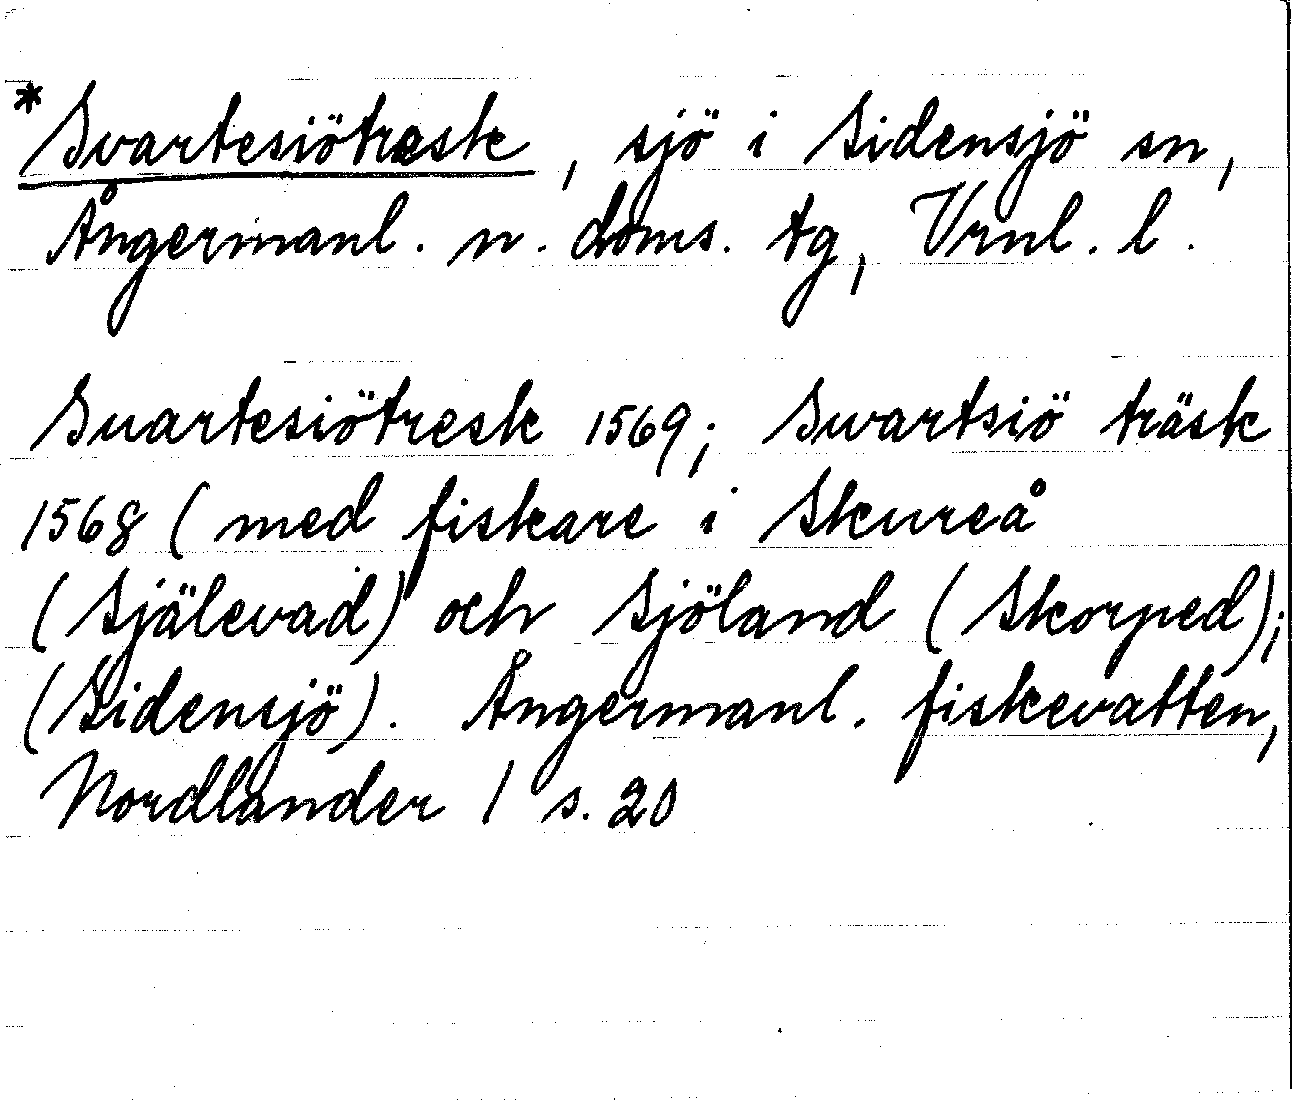 *Svartesiötresk, sjö i Sidensjö sn,
Ångermanl. n. doms. tg, Vrnl. l.
Suartesiötresk 1569; Swartsiö träsk
1568 (med fiskare i Skureå
(Själevad) och Sjöland (Skorped);
(Sidensjö). Ångermanl. fiskevatten,
Nordlander 1 s. 20